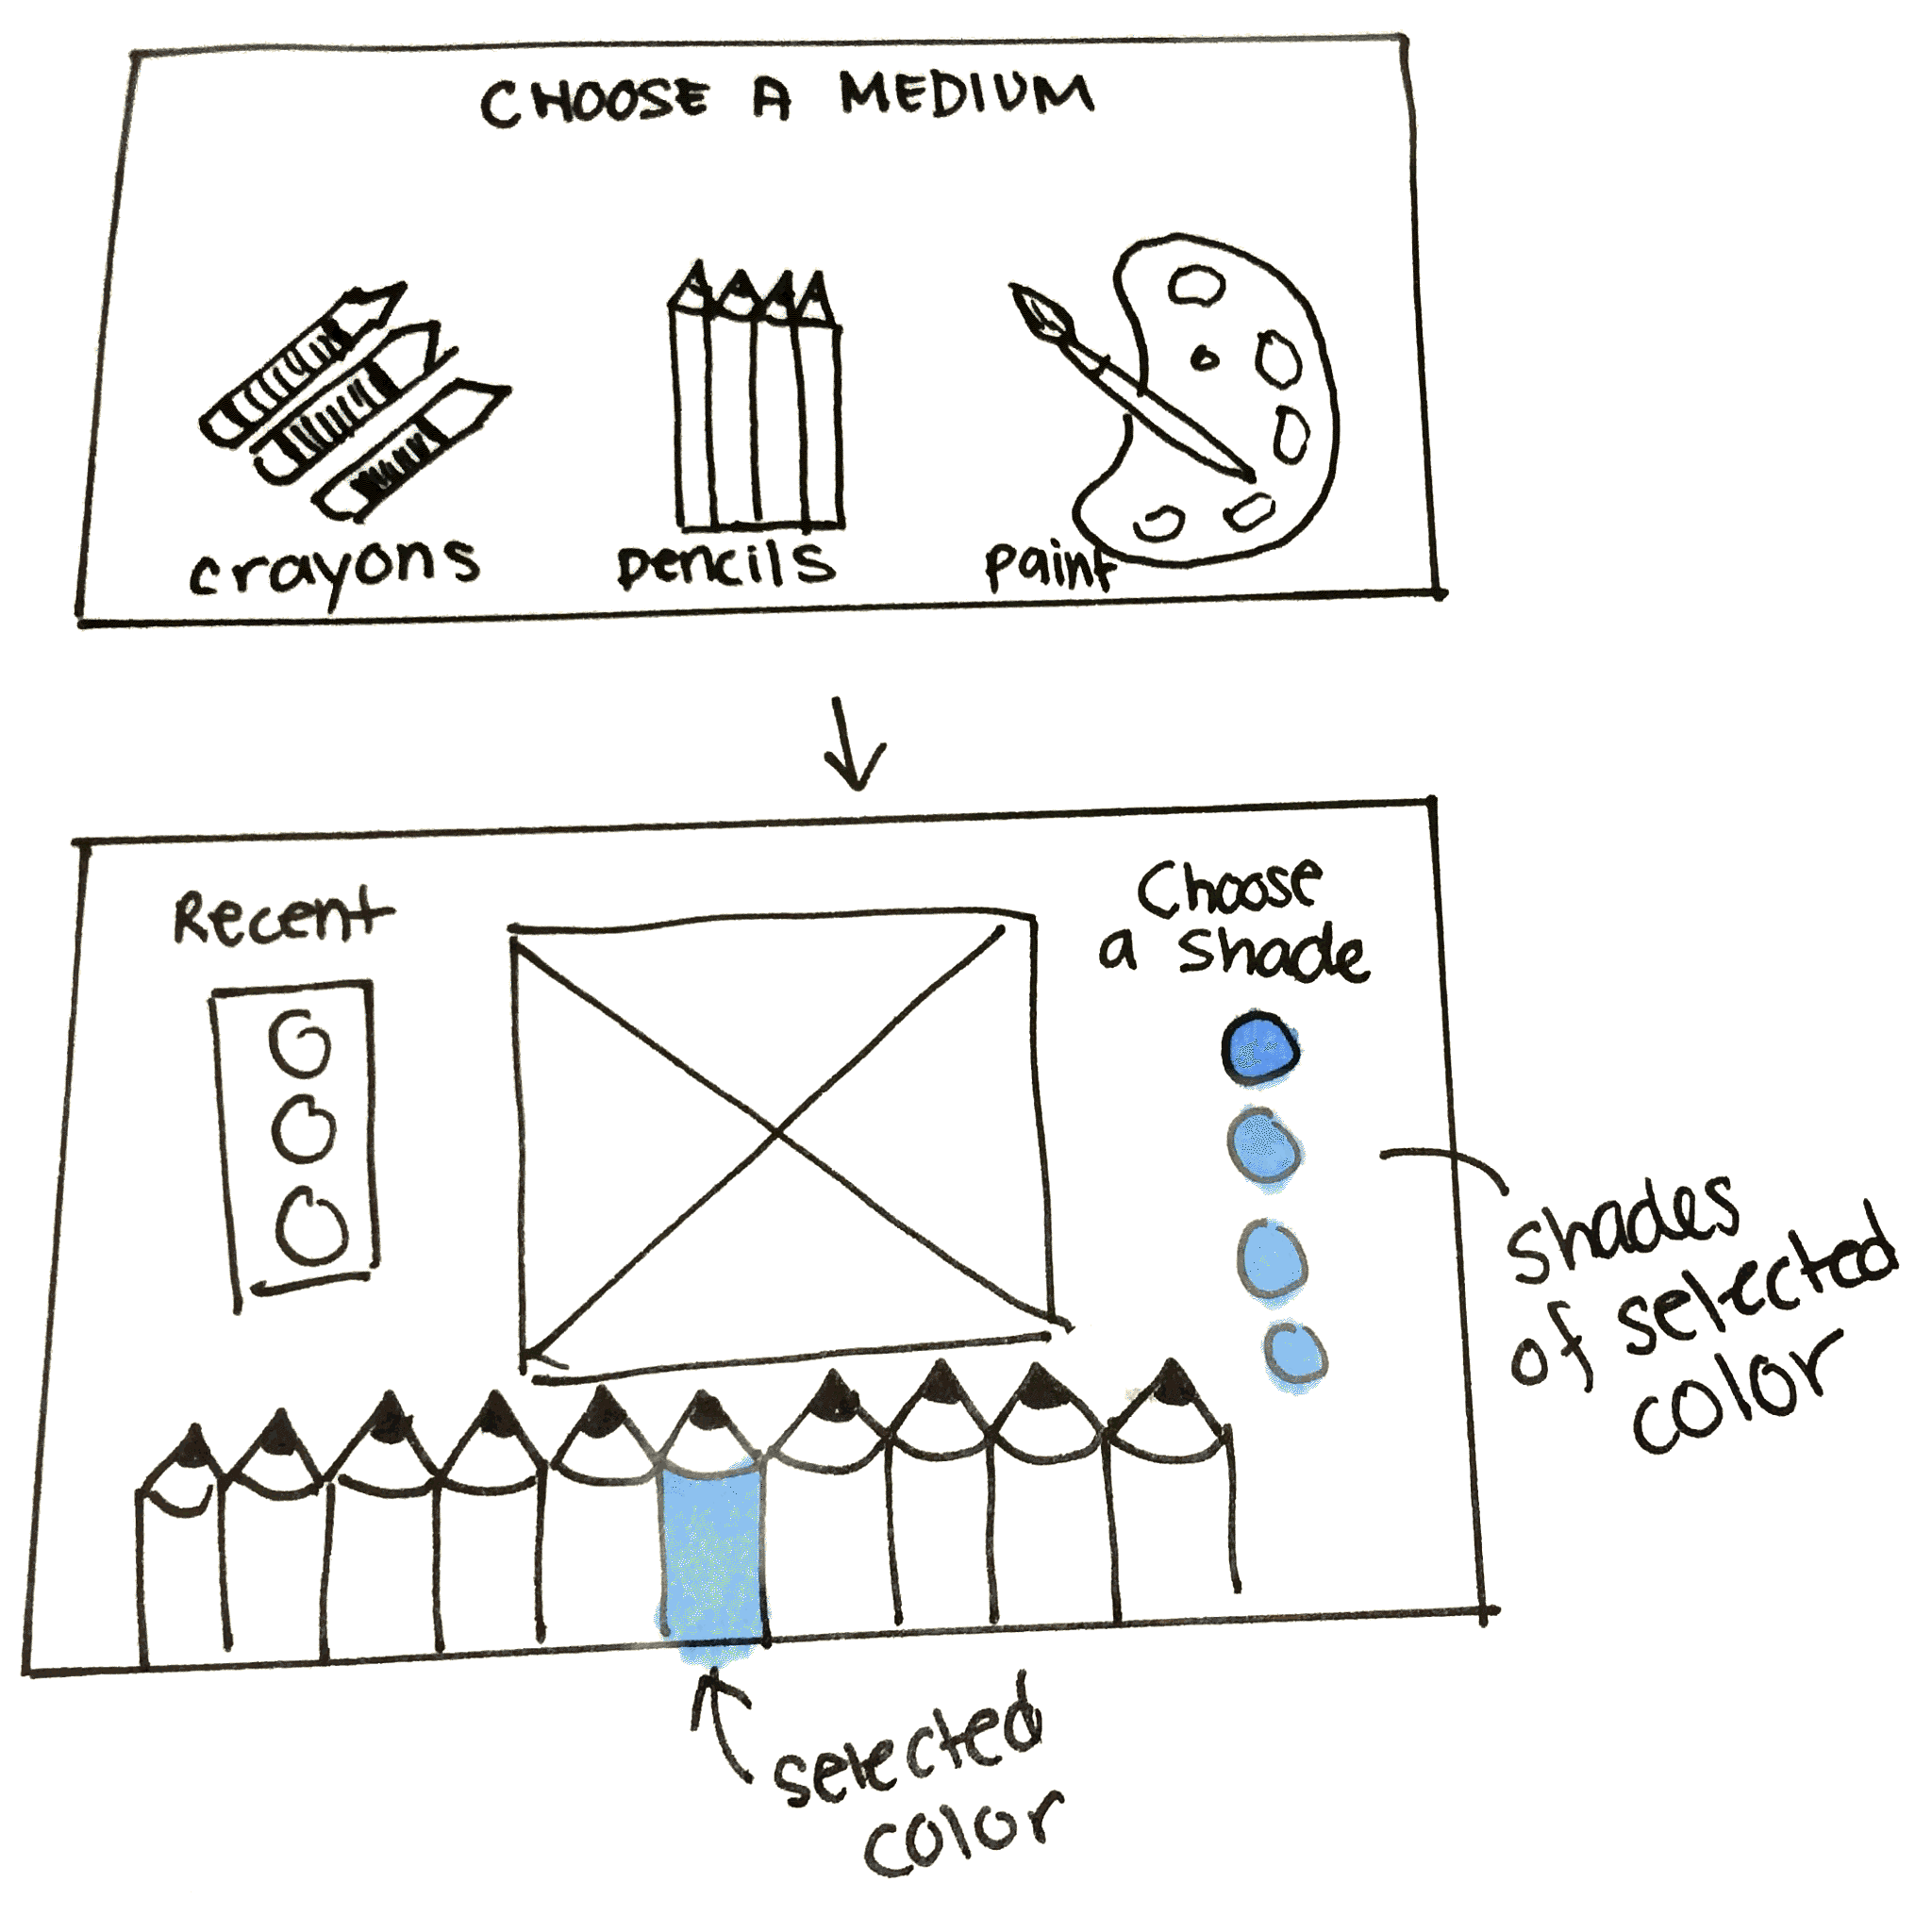 CHOOSE A MEDIUM
crayons
pencils
paint
Recent
Choose
a shade
shades
of selected
color
selected
color